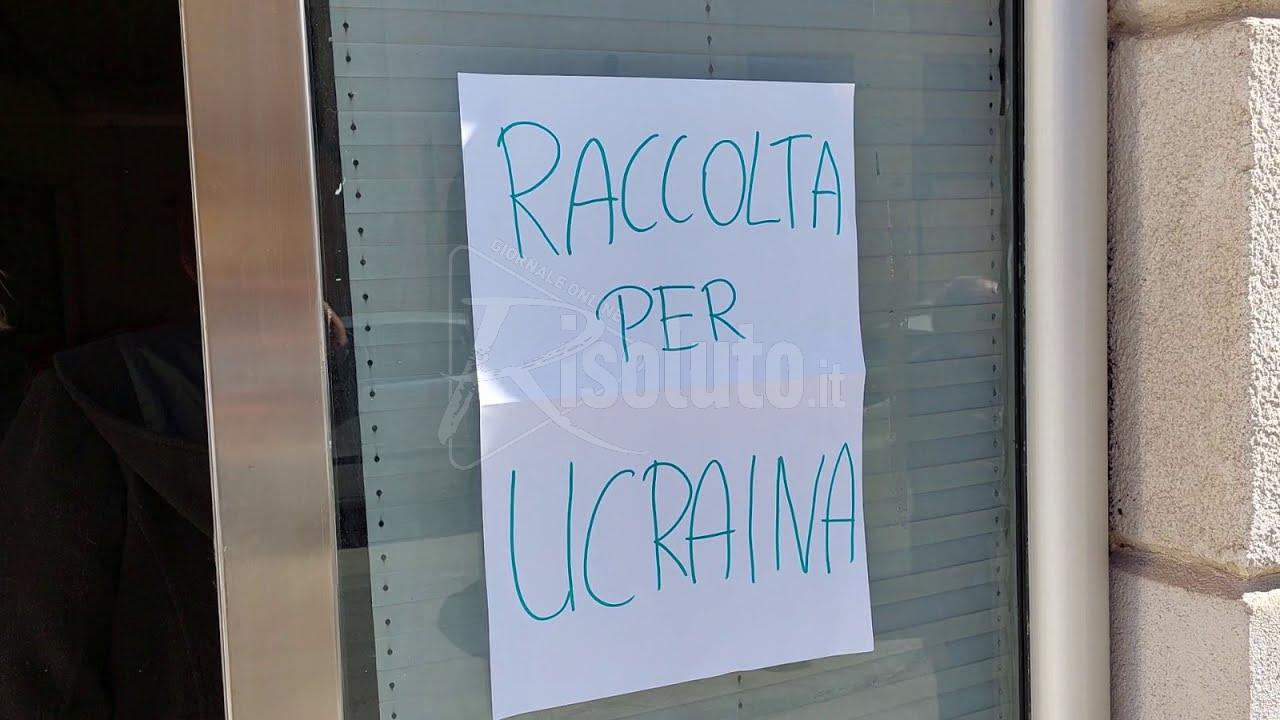 RACCOLTA
PER
UCRAINA
GIORNALE ONLINE
Risoluto.it